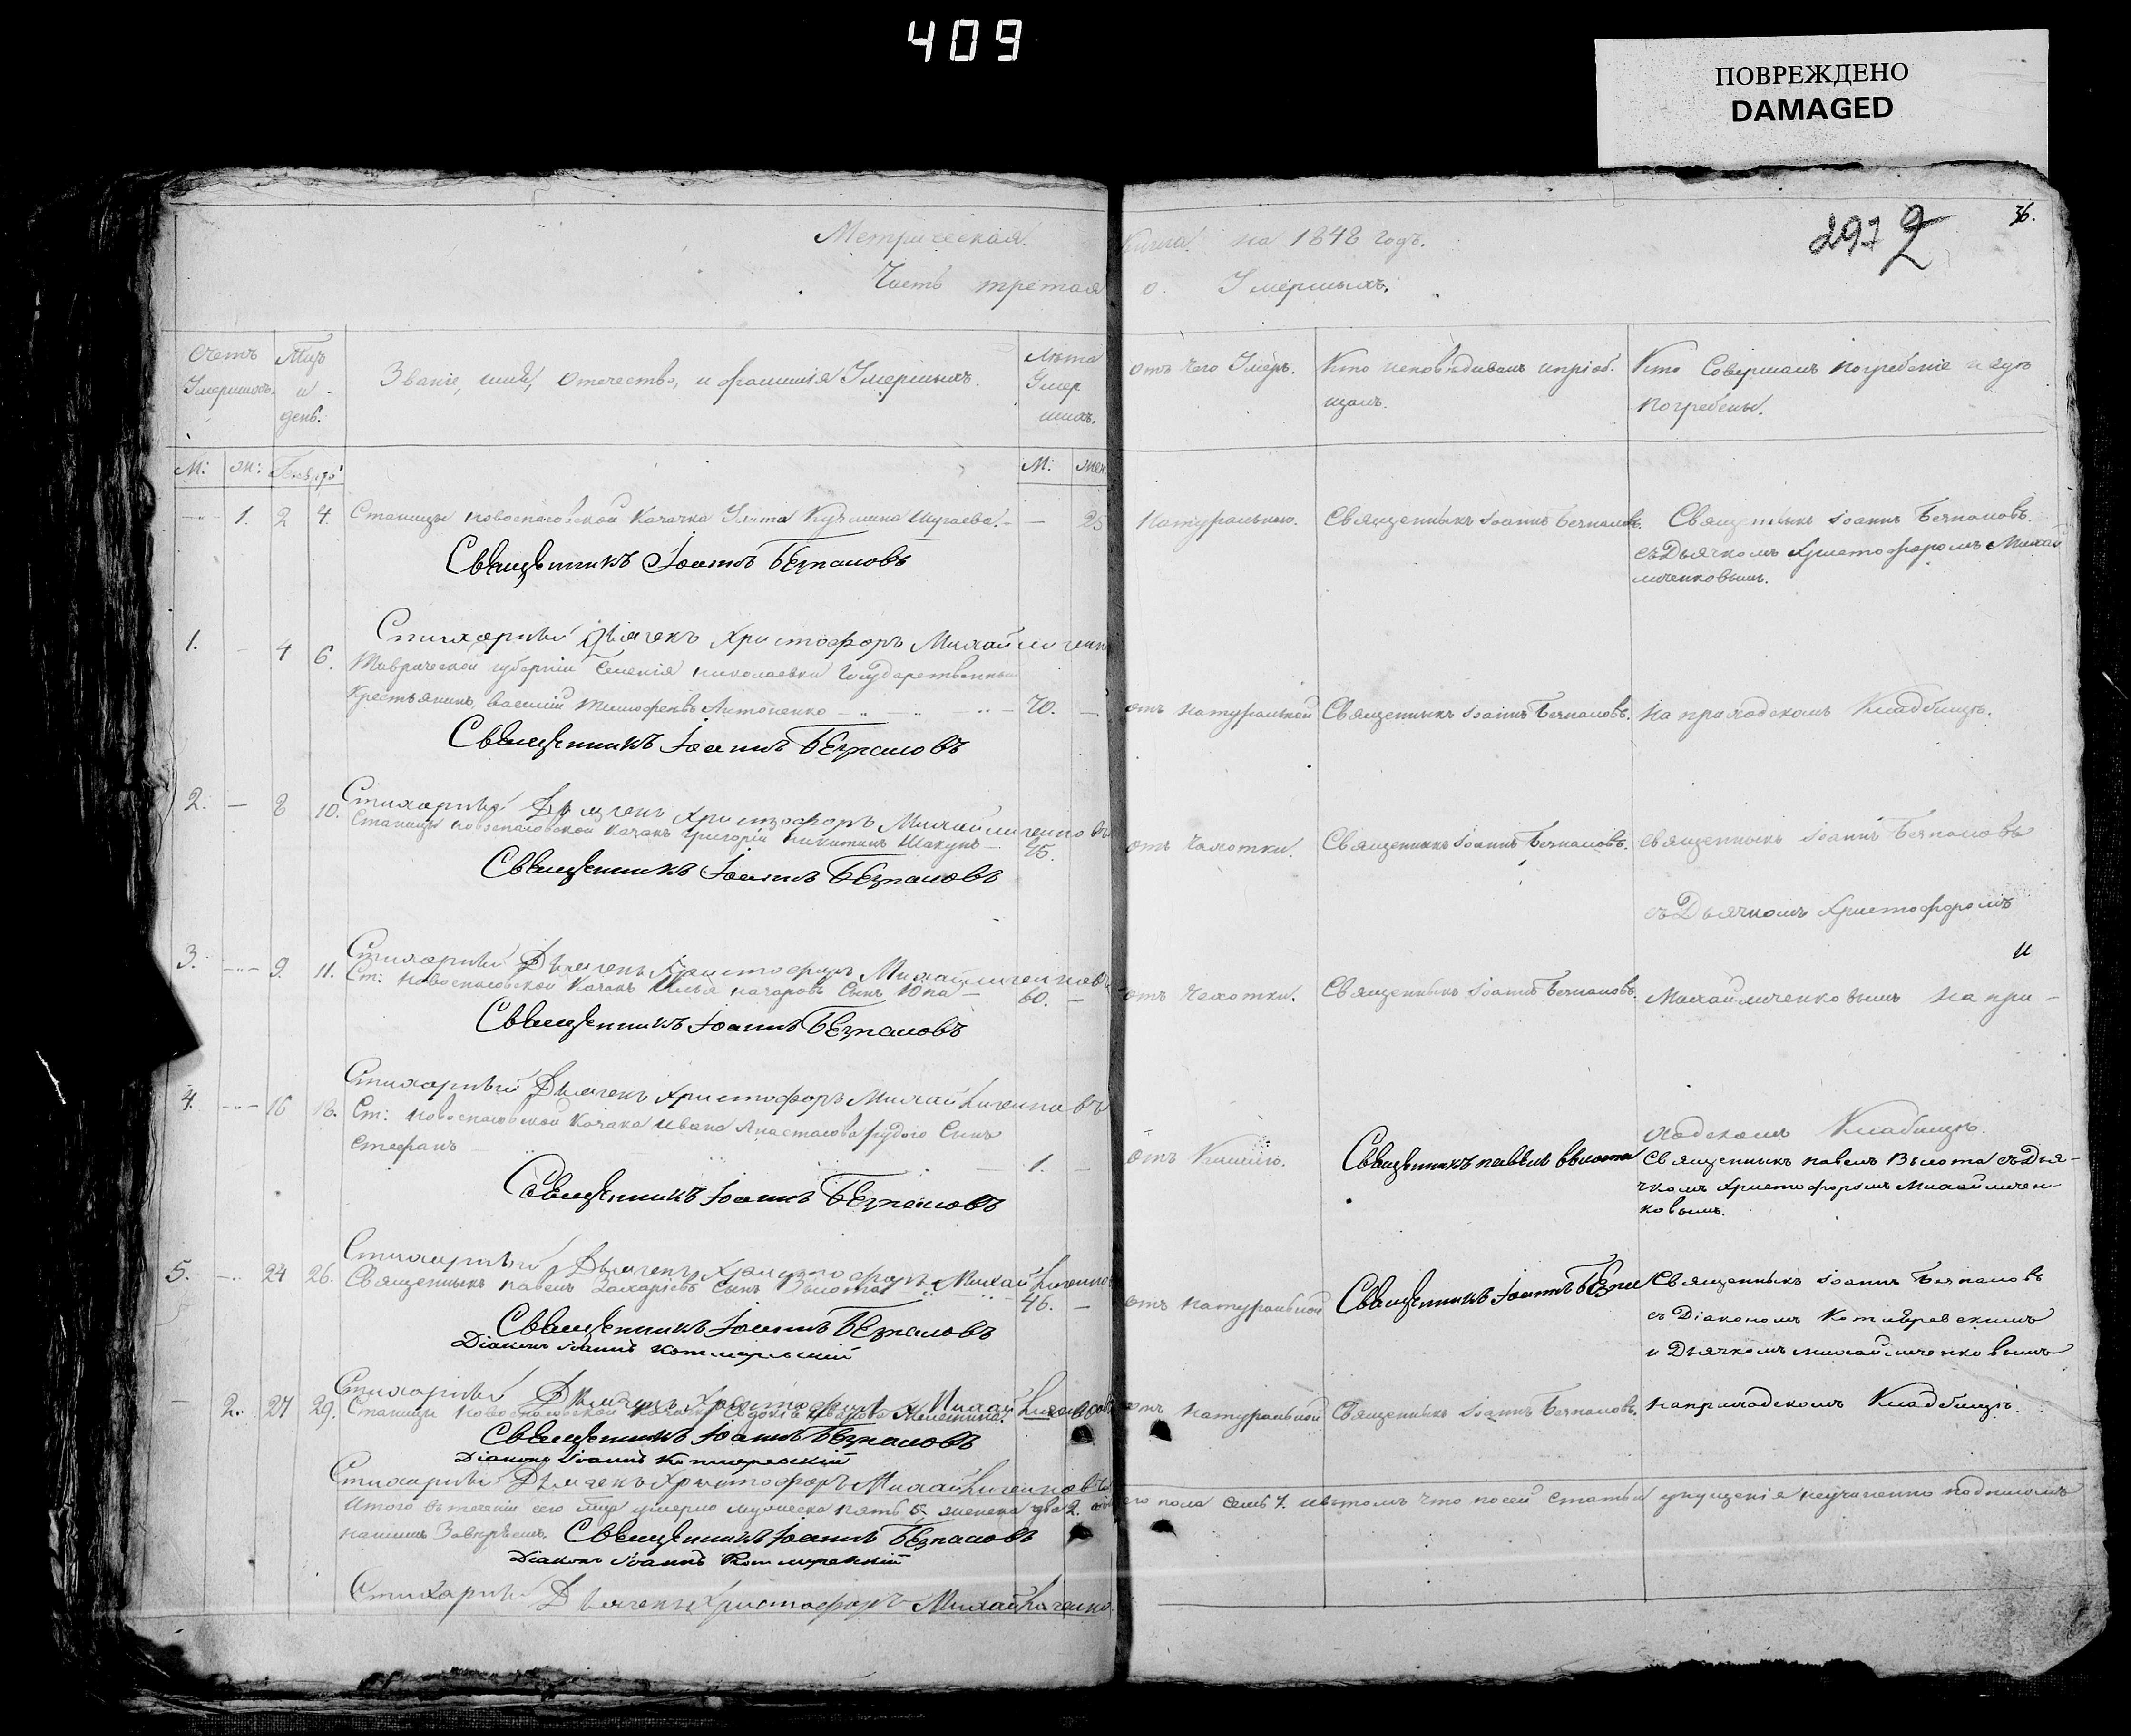 409
ПОВРЕЖДЕНО
DAMAGED
36.
Метрическая Книга на 1848 годъ.
Часть третая о Умершыхъ.
Счетъ Умершихъ.
Мцъ и день.
Званіе, имя, Отечество, и фамилія Умершыхъ.
Лѣта Умер шихъ.
отъ чего Умеръ.
Кто исповѣдывалъ и пріоб. щалъ.
Кто Совершалъ погребеніе и гдѣ погребены.
М: Ж:
М: Жен
1. 2 4. Станицы новоспасовской Казачка
25
Натуральною. Священныкъ Іоаннъ Безпаловъ. Священныкъ Іоаннъ Безпаловъ
съ Дьячкомъ Христофоромъ Михай
личенковымъ.
Священникъ Іоаннъ Безпаловъ
Стихарный Дьячекъ Христофоръ Михайличенко
1. - 4 6. Таврической губерніи Селенія николаевки Государственный
Крестьянинъ, василій Тимофеевъ Антоненко 70. — отъ натуральной Священныкъ Іоаннъ Безпаловъ. На приходскомъ Кладбищѣ.
Священникъ Іоаннъ Безпаловъ
Стихарный Дьячекъ Христофоръ Михайличенковъ
2. — 8 10. Станицы новоспасовской казакъ григорій никитинъ Шакунъ 45. отъ Чахотки. Священныкъ Іоаннъ Безпаловъ. Священныкъ Іоаннъ Безпаловъ
Священникъ Іоаннъ Безпаловъ
съ Дьячкомъ Христофоромъ
Стихарный Дьячекъ Христофоръ Михайличенковъ
3. — 9. 11. Ст: новоспасовской Казакъ Илья назаровъ Сынъ Юпа — 60. — отъ Чахотки. Священныкъ Іоаннъ Безпаловъ. Михайличенковымъ на при-
Священникъ Іоаннъ Безпаловъ
Стихарный Дьячекъ Христофоръ Михайличенковъ
4. — 16 18. Ст: новоспасовской Казака Ивана Анастасова рудого Сынъ
Стефанъ 1. — отъ Кашлю. Священникъ павелъ Вылота
ходскомъ Кладбищѣ.
Священныкъ павелъ Вылота съ Дья-
чкомъ Христофоромъ Михайличен-
ковымъ.
Священникъ Іоаннъ Безпаловъ
Стихарный Дьячекъ Христофоръ Михайличенков
5. — 24 26. Священныкъ павелъ Захаріевъ Сынъ Вылота 46. — отъ натуральной Священникъ Іоаннъ Безпа Священныкъ Іоаннъ Безпаловъ
съ Діакономъ Котляревскимъ
и Дьячкомъ михайличенковымъ
Священникъ Іоаннъ Безпаловъ
Діаконъ Іоаннъ Котляревскій
Стихарный Дьячекъ Христофоръ Михайличенковъ
— 2. 27 29. Станицы новоспасовской Казачка Евдокія Иванова отъ натуральной Священныкъ Іоаннъ Безпаловъ. на приходскомъ Кладбищѣ.
Священникъ Іоаннъ Безпаловъ
Діаконъ Іоаннъ Котляревскій
Стихарный Дьячекъ Христофоръ Михайличенковъ
Итого въ теченіи сего мця умерло мужеска пять 5. женска два 2. пола семь 7. и въ томъ что по сей Статьи упущенія неучиненно подписомъ
нашимъ Завѣряемъ. Священникъ Іоаннъ Безпаловъ
Діаконъ Іоаннъ Котляревскій
Стихарный Дьячекъ Христофоръ Михайличенко